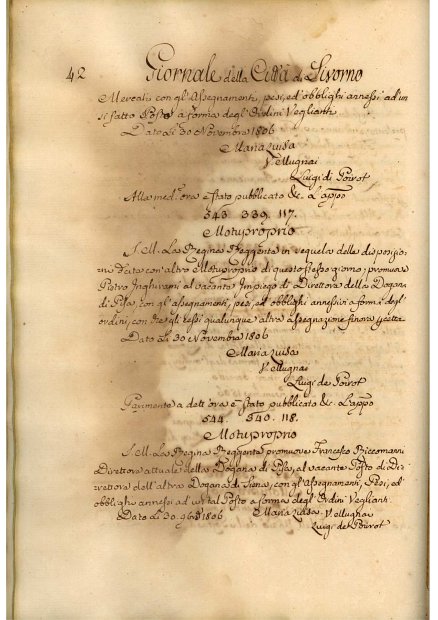 42 Giornale della Città di Livorno
Mercatis con gl'Assegnamenti, pesi, ed obblighi annessi ad un
si fatto Posto a forma degl'Ordini Veglianti
Dato Li 30 Novembre 1806
Maria Luisa
V. Mugnai
Luigi di Poirot
Alla med. ora è stato pubblicato &c. L'appo
543 339. 117.
Motuproprio
S. M. La Regina Reggente in sequela delle disposizio
ni con altro Motuproprio di questo stesso giorno, promuove
Pietro Inghirami al vacante Impiego di Direttore della Dogana
di Pisa, con gl'assegnamenti, pesi, ed obblighi annessivi a forma degl'
ordini, con che gli cessi qualunque altra assegnazione finora
Dato Li 30 Novembre 1806
Maria Luisa
V. Mugnai
Luigi de Poirot
Parimente a dett'ora è stato pubblicato &c. L'appo
544. 340. 118.
Motuproprio
S. M. La Regina Reggente promuove Francesco
Direttore attuale della Dogana di Pisa, al vacante Posto di Di
rettore dell'altra Dogana di Siena, con gl'Assegnamenti, Pesi, ed
obblighi annessi ad un tal Posto a forma degl'Ordini Veglianti.
Dato Li 30. 9bre 1806 Maria Luisa V. Mugnai
Luigi de Poirot